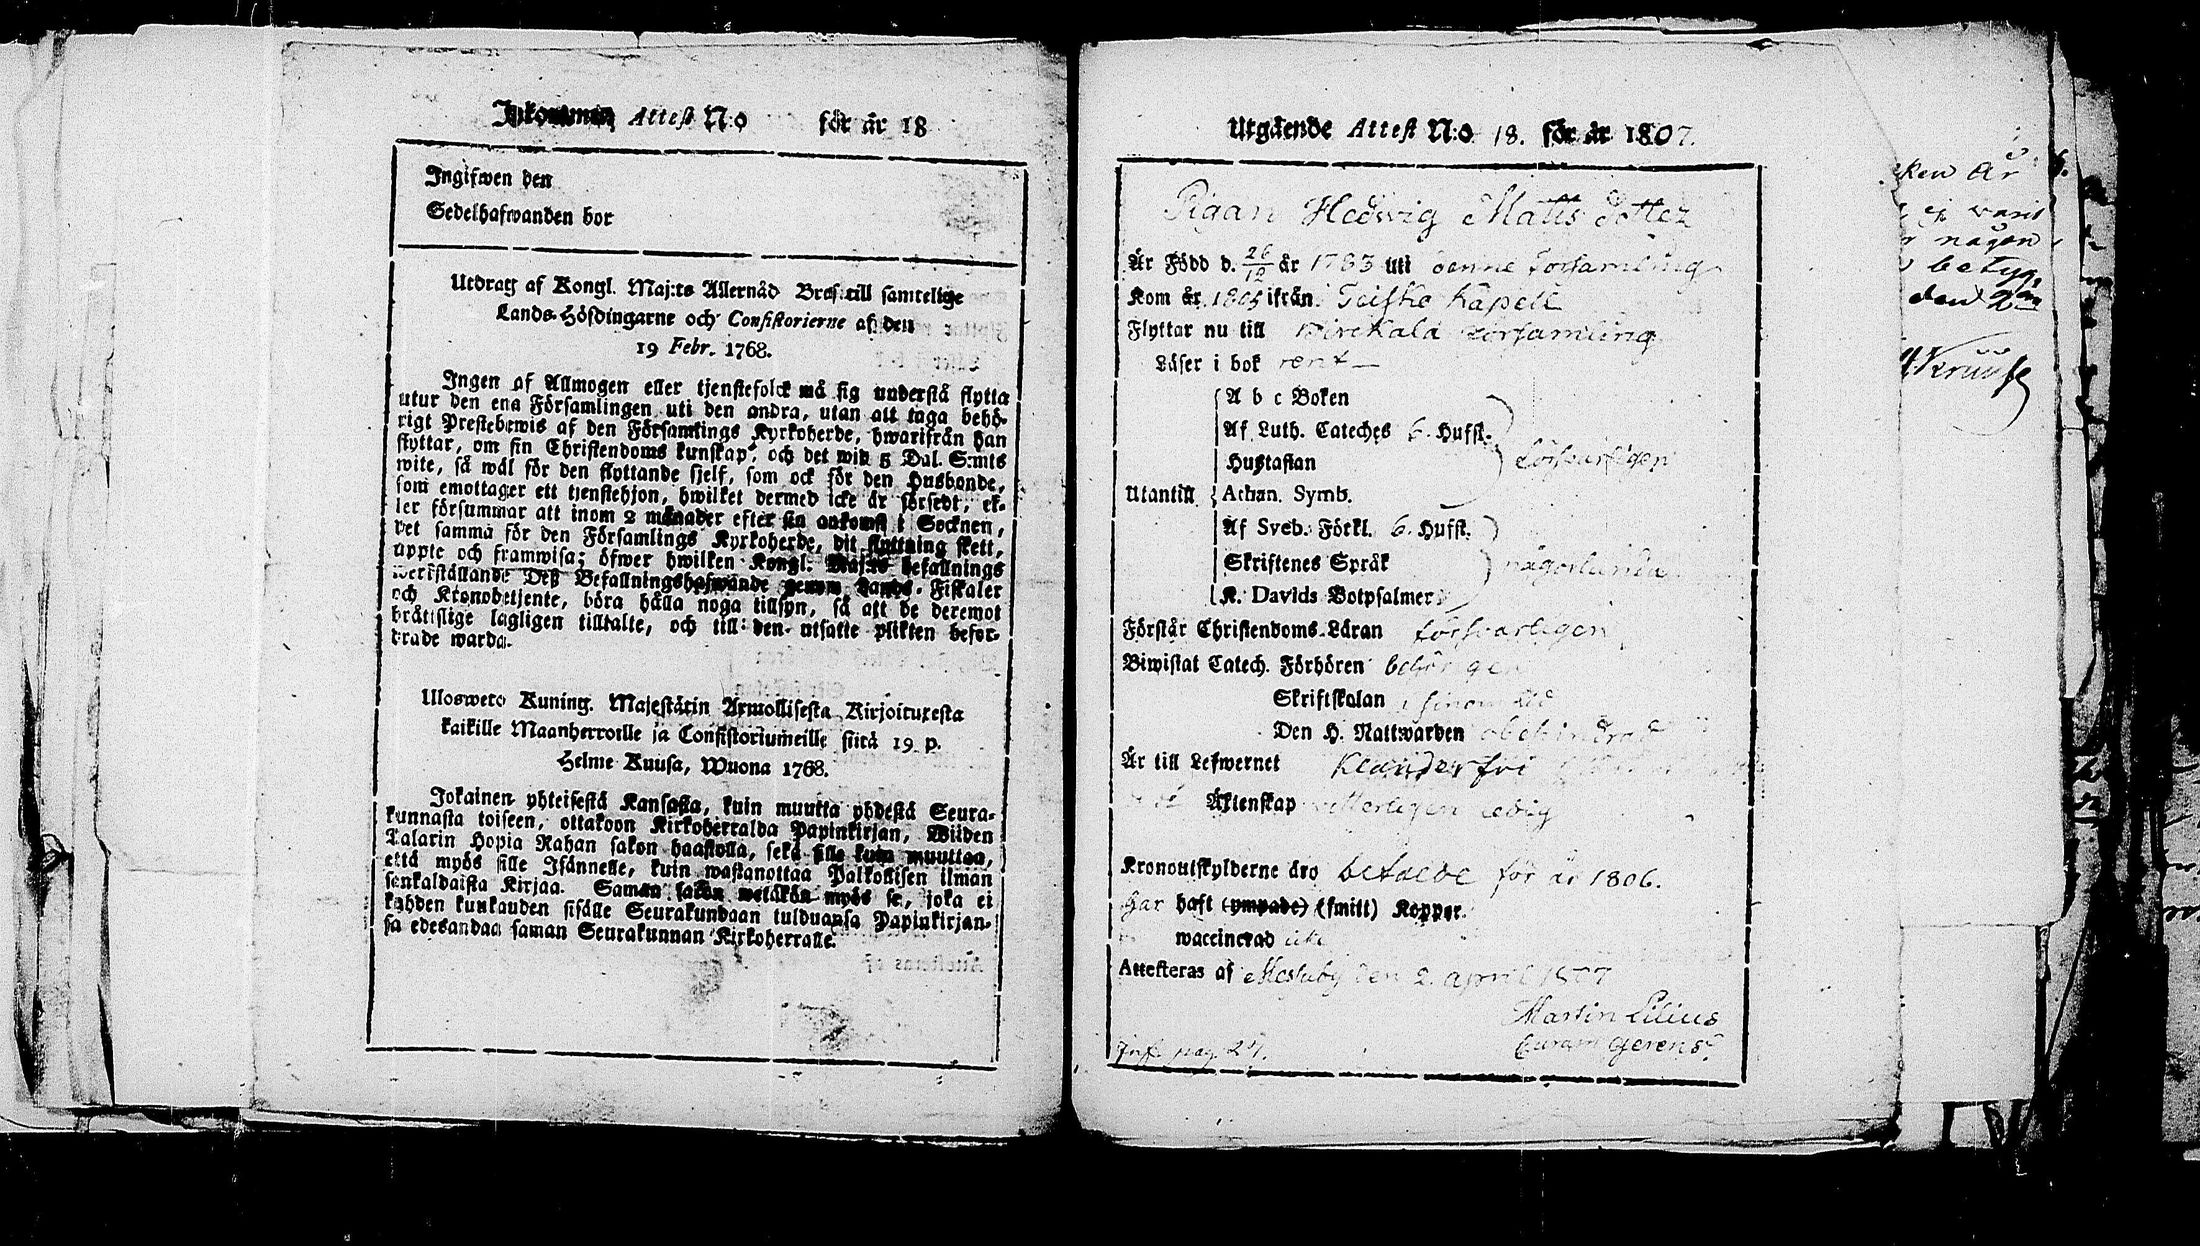 Inkommen Attest N:o för år 18
Ingifwen den
Sedelhafwanden bor
Utdrag af Kongl. Maj:ts Allernåd Bref till samtelige
Lands-Höfdingarne och Consistorierne af den
19 Febr. 1768.
Ingen af Allmogen eller tjenstefolck må sig understå flytta
utur den ena Församlingen uti den andra, utan att taga behö-
rigt Prestebewis af den Församlings Kyrkoherde, hwarifrån han
flyttar, om sin Christendoms kunskap, och det wid 5 Dal. S:mts
wite, så wäl för den flyttande sjelf, som ock för den Husbonde,
som emottager ett tjenstehjon, hwilket dermed icke är försedt, el-
ler försummar att inom 2 månader efter sin ankomst i Socknen,
det samma för den Församlings Kyrkoherde, dit flyttning skett,
uppte och framwisa; öfwer hwilken Kongl. Maj:ts befallnings
werkställande Deß Befallningshafwande genom Lands-Fiskaler
och Kronobetjente, böra hålla noga tillsyn, så att de deremot
bråttslige lagligen tilltalte, och till den utsatte plikten befor-
drade warda.
Ulosweto Kuning. Majestätin Armollisesta Kirjoituxesta
kaikille Maanherroille ja Consistoriumeille siitä 19 p.
Helme Kuusa, Wuona 1768.
Jokainen yhteisestä Kansasta, kuin muutta yhdestä Seura-
kunnasta toiseen, ottakoon Kirkoherralda Papinkirjan, Wiiden
Talarin Hopia Rahan sakon haastolla, sekä sille kuin muuttaa,
että myös sille Isännelle, kuin wastanottaa Palkollisen ilman
senkaldaista Kirjaa. Saman sakon wetäkön myös se, joka ei
kahden kuukauden sisälle Seurakundaan tulduansa Papinkirjan-
sa edesandaa saman Seurakunnan Kirkoherralle.
Utgående Attest N:o 18. för år 1807.
Pigan Hedwig Matts Dotter
Är Född d. 26/12 år 1783 uti denne Församling
Kom år 1805 ifrån Teisko Kapell
Flyttar nu till Birckala Församling
Läser i bok rent
A b c Boken
Af Luth. Cateches 6. Hufst.
Hustaflan försvarligen
Utantill Athan. Symb.
Af Sveb. Förkl. 6. Hufst.
Skriftenes Språk någorlunda
K. Davids Botpsalmer
Förstår Christendoms-Läran försvarligen
Biwistat Catech. Förhören behörigen
Skriftskolan i sinom tid
Den H. Nattwarden obehindrat
Är till Lefwernet Klanderfri
Äktenskap witterligen ledig
Kronoutskylderne äro betalde för år 1806.
Har haft (ympade) (smitt) Koppor.
waccinerad icke
Attesteras af Messuby den 2. april 1807
Martin Lilius
Curam Gerens.
Inf. pag. 27.
ken År
ej warit
någon
betyg.
den 2
Kruuse